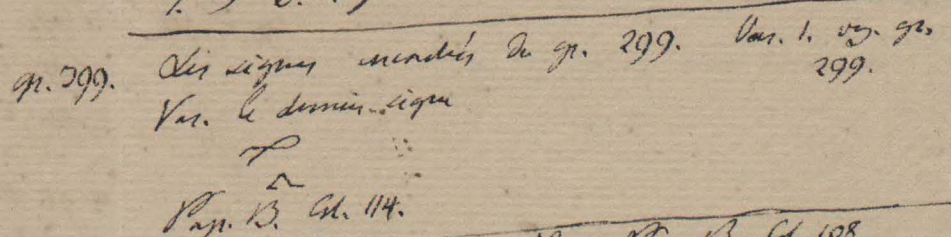 gr. 399. Les signes mondés du gr. 299. Var. 1. voy. gr. 299.
Var. le dernier signe
Pap. B. Col. 114.
B. Col. 108